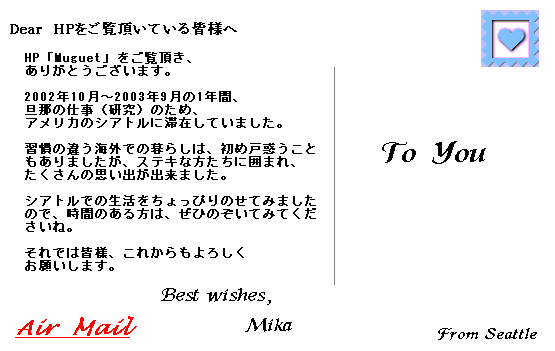 Dear HPをご覧頂いている皆様へ
HP「Muguet」をご覧頂き、
ありがとうございます。
2002年10月～2003年9月の1年間、
旦那の仕事（研究）のため、
アメリカのシアトルに滞在していました。
習慣の違う海外での暮らしは、初め戸惑うこと
もありましたが、ステキな方たちに囲まれ、
たくさんの思い出が出来ました。
シアトルでの生活をちょっぴりのせてみました
ので、時間のある方は、ぜひのぞいてみてくだ
さいね。
それでは皆様、これからもよろしく
お願いします。
Best wishes,
Mika
Air Mail
To You
From Seattle